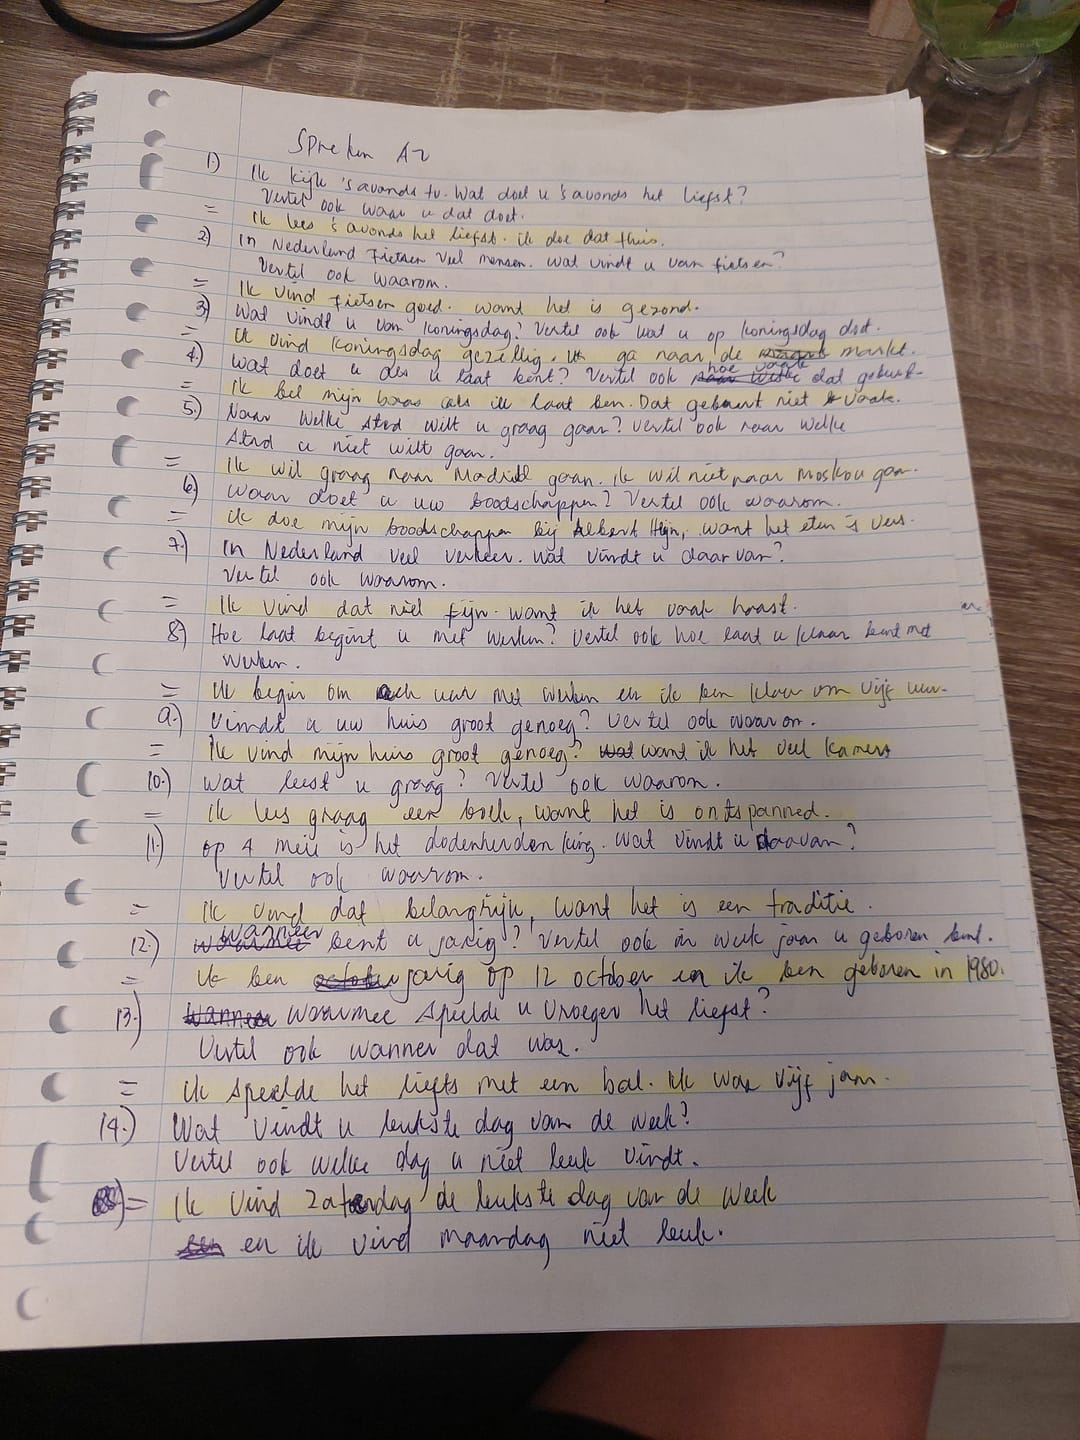 Spreken A2
1.) Ik kijk 's avonds tv. Wat doet u 's avonds het liefst?
Vertel ook waar u dat doet.
= Ik lees 's avonds het liefst. ik doe dat thuis.
2.) In Nederland fietsen veel mensen. wat vindt u van fietsen?
Vertel ook waarom.
= Ik vind fietsen goed. want het is gezond.
3.) Wat vindt u van koningsdag? Vertel ook wat u op koningsdag doet.
= Ik vind koningsdag gezellig. Ik ga naar de markt.
4.) Wat doet u als u laat bent? Vertel ook hoe vaak dat gebeurt.
= Ik bel mijn baas als ik laat ben. Dat gebeurt niet vaak.
5.) Naar welke stad wilt u graag gaan? Vertel ook naar welke
stad u niet wilt gaan.
= Ik wil graag naar Madrid gaan. ik wil niet naar Moskou gaan.
6.) Waar doet u uw boodschappen? Vertel ook waarom.
= ik doe mijn boodschappen bij Albert Hijn, want het eten is vers.
7.) In Nederland veel verkeer. Wat vindt u daar van?
Vertel ook waarom.
= Ik vind dat niet fijn. want ik heb vaak haast.
8.) Hoe laat begint u met werken? Vertel ook hoe laat u klaar bent met
werken.
= Ik begin om ach uur met werken en ik ben klaar om vijf uur.
9.) Vindt u uw huis groot genoeg? Vertel ook waarom.
= Ik vind mijn huis groot genoeg? want ik heb veel kamers
10.) Wat leest u graag? Vertel ook waarom.
= Ik lees graag een boek, want het is ontspanned.
11.) op 4 meii is het dodenherdenking. Wat vindt u daavan?
Vertel ook waarom.
= Ik vind dat belangrijk, want het is een traditie.
12.) wanneer bent u jarig? Vertel ook in welk jaar u geboren bent.
= Ik ben jarig op 12 october en ik ben geboren in 1980.
13.) waarmee speelde u vroeger het liefst?
Vertel ook wanner dat was.
= ik speelde het liefts met een bal. Ik was vijf jaar.
14.) Wat vindt u leukste dag van de week?
Vertel ook welke dag u niet leuk vindt.
= Ik vind zaterdag de leukste dag van de week
en ik vind maandag niet leuk.